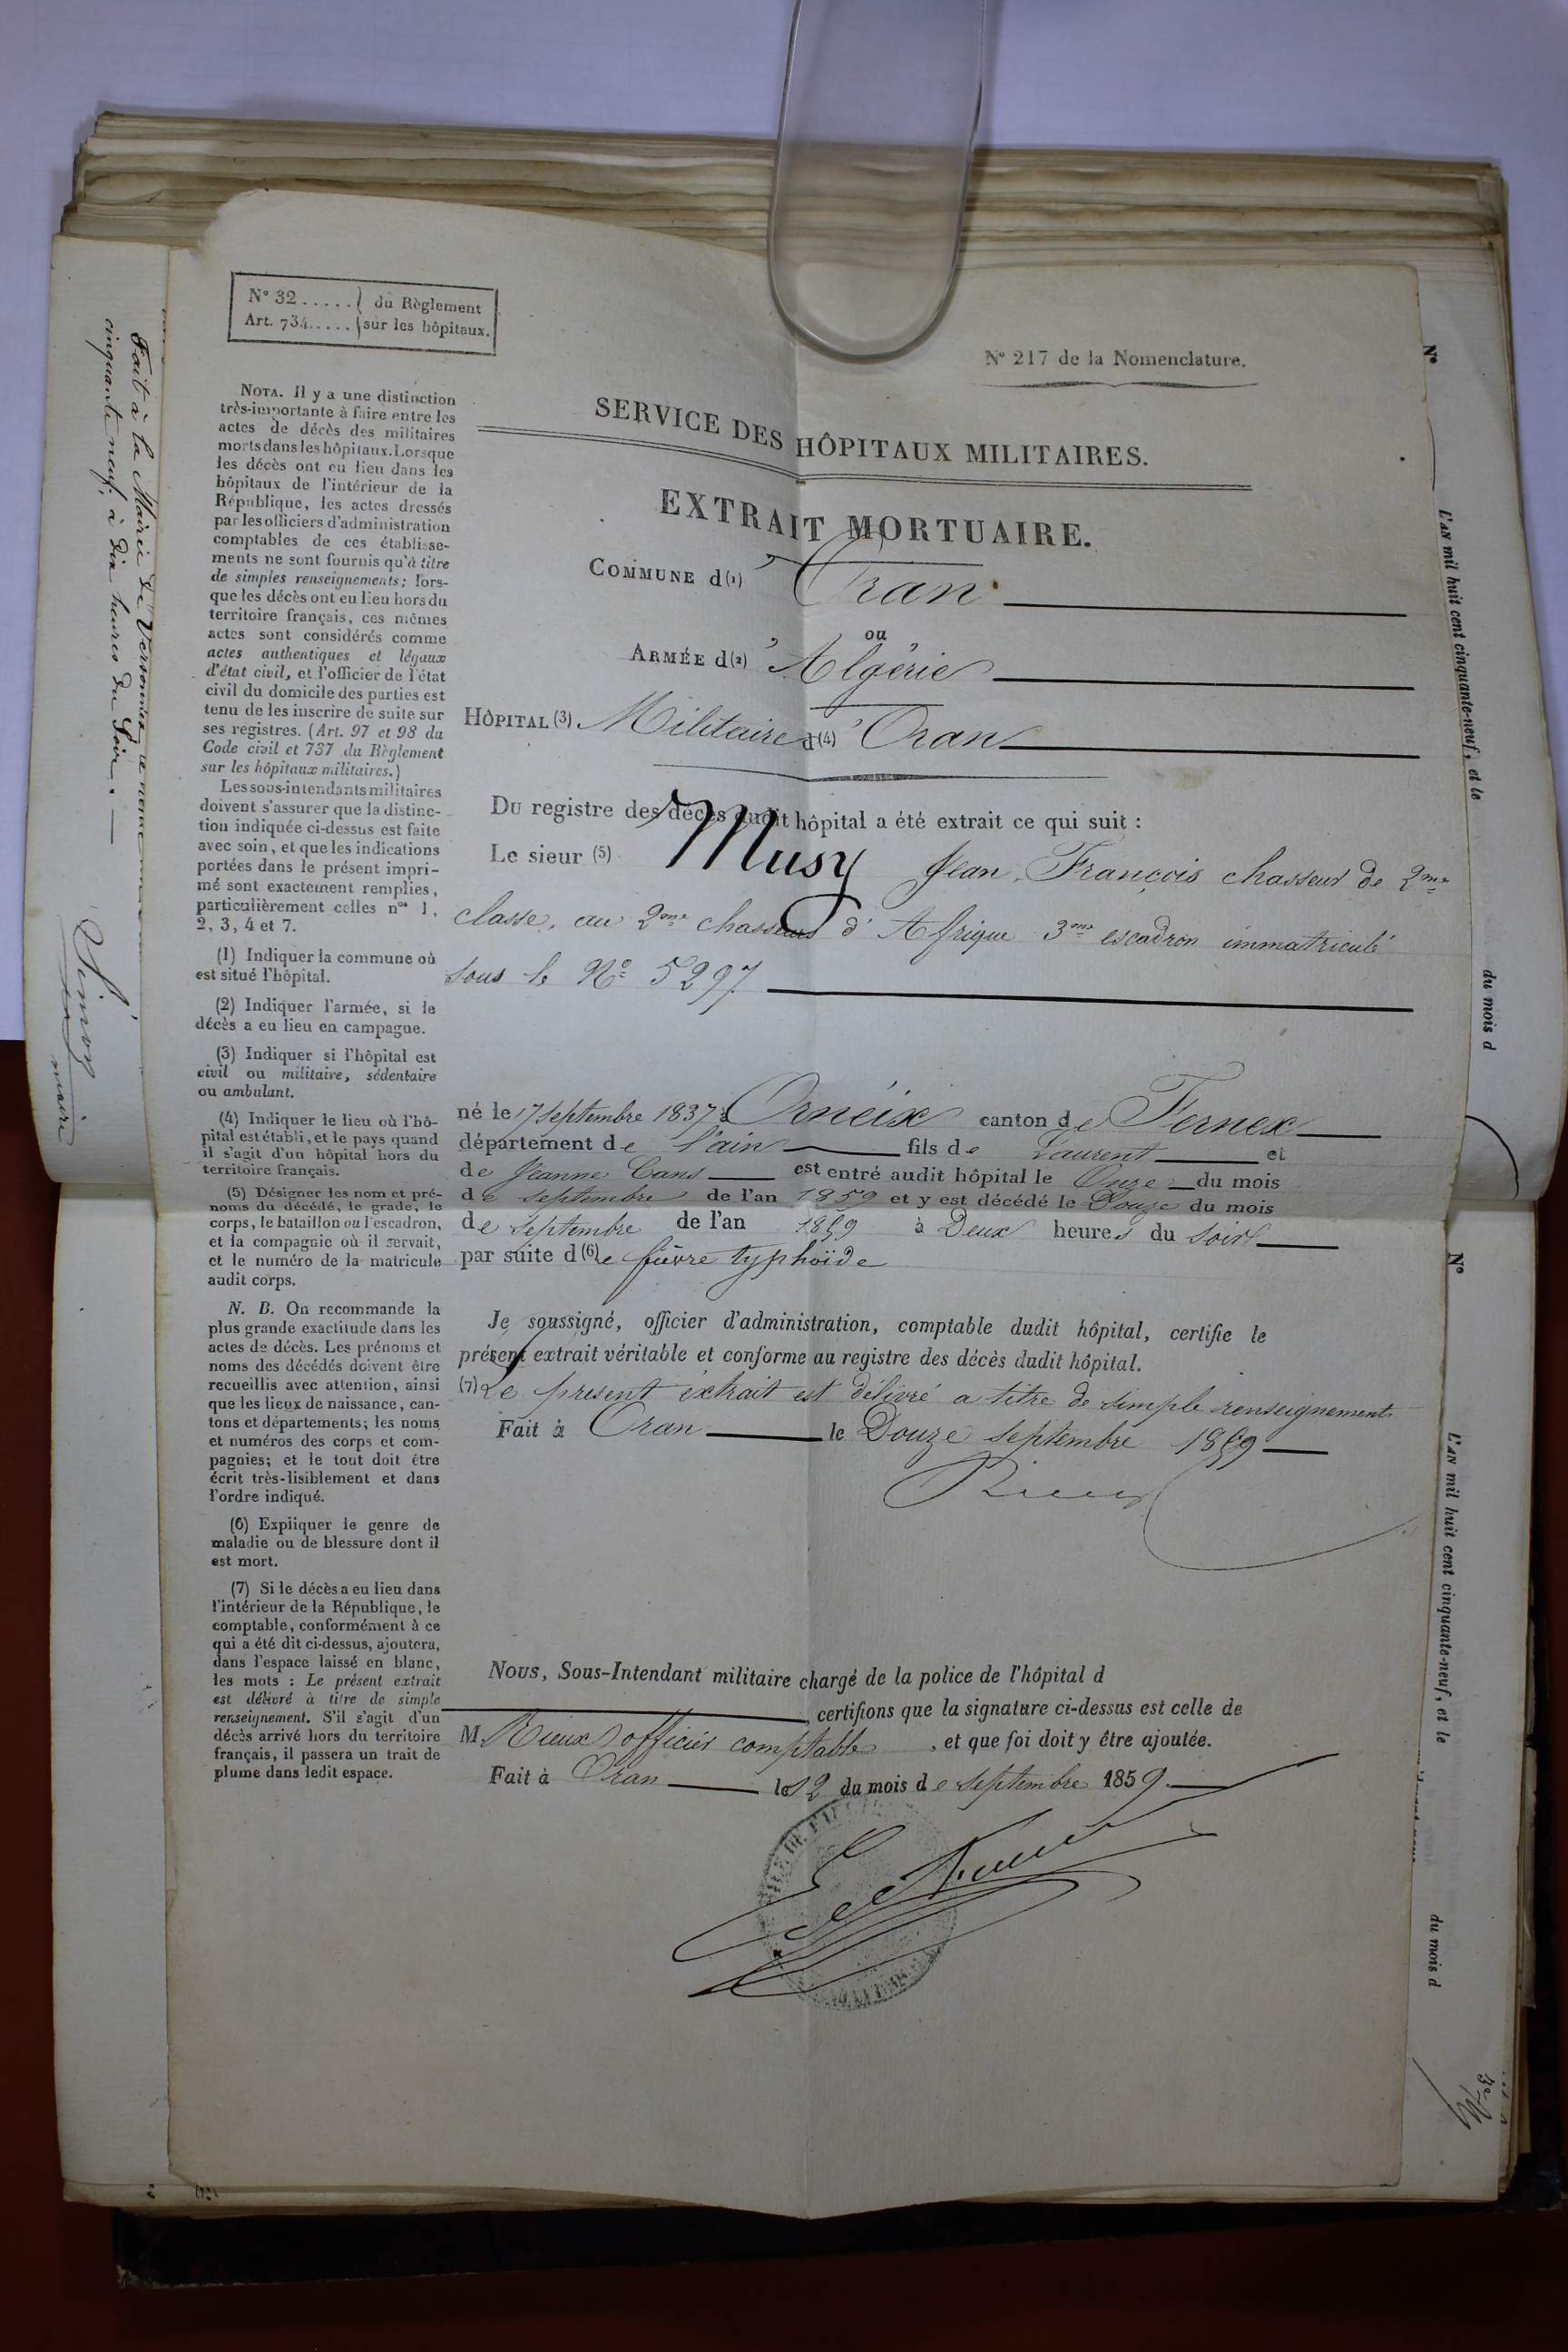 N° 32 ..... ( du Règlement
Art. 734..... ( sur les hôpitaux.
N° 217 de la Nomenclature.
SERVICE DES HÔPITAUX MILITAIRES.
EXTRAIT MORTUAIRE.
COMMUNE d(1)' Oran
ou
ARMÉE d(2)' Algérie
HÔPITAL (3) Militaire d(4)' Oran
Du registre des décès dudit hôpital a été extrait ce qui suit :
Le sieur (5) Musy Jean François chasseur de 2me
classe, au 2me chasseurs d'Afrique 3me escadron immatriculé
sous le N° 5297
né le 17 septembre 1837 à Ornéix canton de Fernex
département de l'ain fils de Laurent et
de Jeanne Cans est entré audit hôpital le Onze du mois
de septembre de l'an 1859 et y est décédé le Douze du mois
de septembre de l'an 1859 à Deux heures du soir
par suite d(6)e fièvre typhoïde
Je soussigné, officier d'administration, comptable dudit hôpital, certifie le
présent extrait véritable et conforme au registre des décès dudit hôpital.
(7) Le present extrait est délivré a titre de simple renseignement
Fait à Oran le Douze septembre 1859
Rieux
Nous, Sous-Intendant militaire chargé de la police de l'hôpital d
, certifions que la signature ci-dessus est celle de
M. Rieux officier comptable , et que foi doit y être ajoutée.
Fait à Oran le 12 du mois de septembre 1859.
NOTA. Il y a une distinction
très-importante à faire entre les
actes de décès des militaires
morts dans les hôpitaux. Lorsque
les décès ont eu lieu dans les
hôpitaux de l'intérieur de la
République, les actes dressés
par les officiers d'administration
comptables de ces établisse-
ments ne sont fournis qu'à titre
de simples renseignements; lors-
que les décès ont eu lieu hors du
territoire français, ces mêmes
actes sont considérés comme
actes authentiques et légaux
d'état civil, et l'officier de l'état
civil du domicile des parties est
tenu de les inscrire de suite sur
ses registres. (Art. 97 et 98 du
Code civil et 737 du Règlement
sur les hôpitaux militaires.)
Les sous-intendants militaires
doivent s'assurer que la distinc-
tion indiquée ci-dessus est faite
avec soin, et que les indications
portées dans le présent impri-
mé sont exactement remplies,
particulièrement celles nos 1,
2, 3, 4 et 7.
(1) Indiquer la commune où
est situé l'hôpital.
(2) Indiquer l'armée, si le
décès a eu lieu en campagne.
(3) Indiquer si l'hôpital est
civil ou militaire, sédentaire
ou ambulant.
(4) Indiquer le lieu où l'hô-
pital est établi, et le pays quand
il s'agit d'un hôpital hors du
territoire français.
(5) Désigner les nom et pré-
noms du décédé, le grade, le
corps, le bataillon ou l'escadron,
et la compagnie où il servait,
et le numéro de la matricule
audit corps.
N. B. On recommande la
plus grande exactitude dans les
actes de décès. Les prénoms et
noms des décédés doivent être
recueillis avec attention, ainsi
que les lieux de naissance, can-
tons et départements; les noms
et numéros des corps et com-
pagnies; et le tout doit être
écrit très-lisiblement et dans
l'ordre indiqué.
(6) Expliquer le genre de
maladie ou de blessure dont il
est mort.
(7) Si le décès a eu lieu dans
l'intérieur de la République, le
comptable, conformément à ce
qui a été dit ci-dessus, ajoutera,
dans l'espace laissé en blanc,
les mots : Le présent extrait
est délivré à titre de simple
renseignement. S'il s'agit d'un
décès arrivé hors du territoire
français, il passera un trait de
plume dans ledit espace.
Fait à la Mairie de Versonnex
cinquante neuf, à dix heures du Soir.
maire
N°
L'AN mil huit cent cinquante-neuf, et le
du mois d
N°
L'AN mil huit cent cinquante-neuf, et le
du mois d